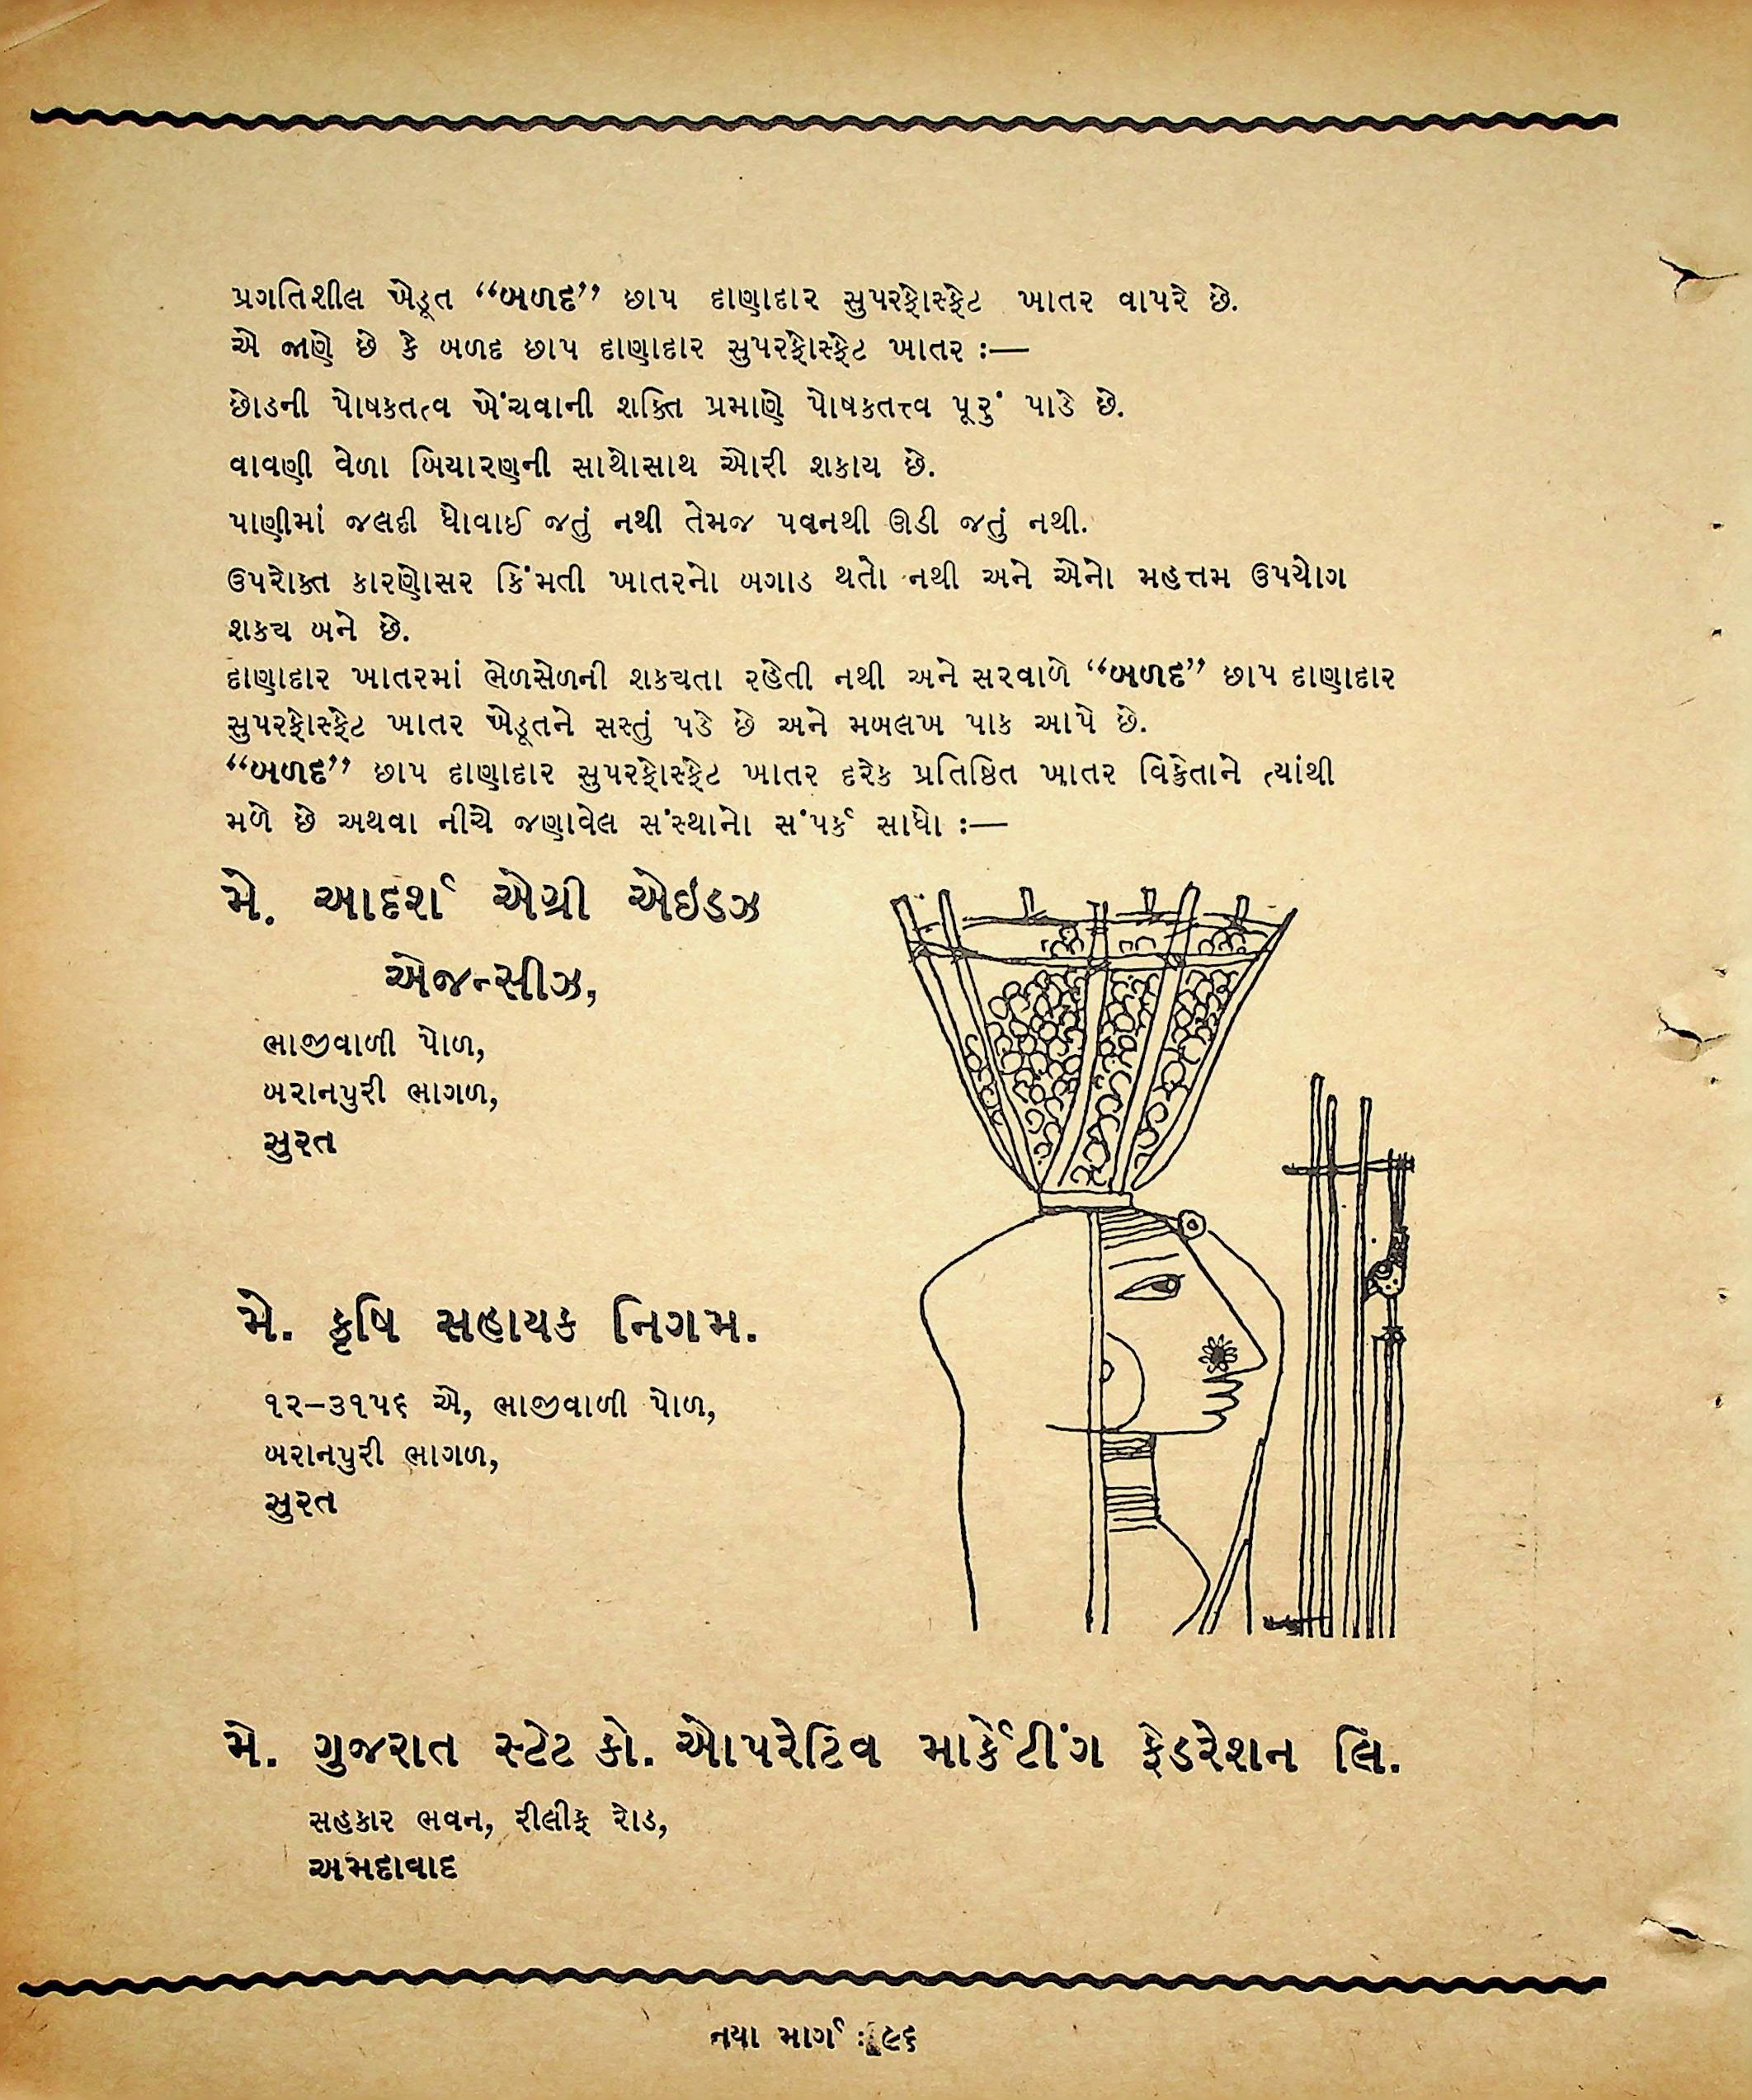 પ્રગતિશીલ ખેડૂત “બળદ” છાપ દાણાદાર સુપરફોસ્ફેટ ખાતર વાપરે છે.
એ જાણે છે કે બળદ છાપ દાણાદાર સુપરફોસ્ફેટ ખાતર :—
છોડની પોષકતત્વ ખેંચવાની શક્તિ પ્રમાણે પોષકતત્ત્વ પૂરું પાડે છે.
વાવણી વેળા બિયારણની સાથોસાથ ઓરી શકાય છે.
પાણીમાં જલદી ધોવાઈ જતું નથી તેમજ પવનથી ઊડી જતું નથી.
ઉપરોક્ત કારણોસર કિંમતી ખાતરનો બગાડ થતો નથી અને એનો મહત્તમ ઉપયોગ
શક્ય બને છે.
દાણાદાર ખાતરમાં ભેળસેળની શક્યતા રહેતી નથી અને સરવાળે “બળદ” છાપ દાણાદાર
સુપરફોસ્ફેટ ખાતર ખેડૂતને સસ્તું પડે છે અને મબલખ પાક આપે છે.
“બળદ” છાપ દાણાદાર સુપરફોસ્ફેટ ખાતર દરેક પ્રતિષ્ઠિત ખાતર વિક્રેતાને ત્યાંથી
મળે છે અથવા નીચે જણાવેલ સંસ્થાનો સંપર્ક સાધો :—
મે. આદર્શ એગ્રી એઇડઝ
એજન્સીઝ,
ભાજીવાળી પોળ,
બરાનપુરી ભાગળ,
સુરત
મે. કૃષિ સહાયક નિગમ.
૧૨–૩૧૫૬ એ, ભાજીવાળી પોળ,
બરાનપુરી ભાગળ,
સુરત
મે. ગુજરાત સ્ટેટ કો. ઓપરેટિવ માર્કેટીંગ ફેડરેશન લિ.
સહકાર ભવન, રીલીફ રોડ,
અમદાવાદ
નયા માર્ગ : ૯૬